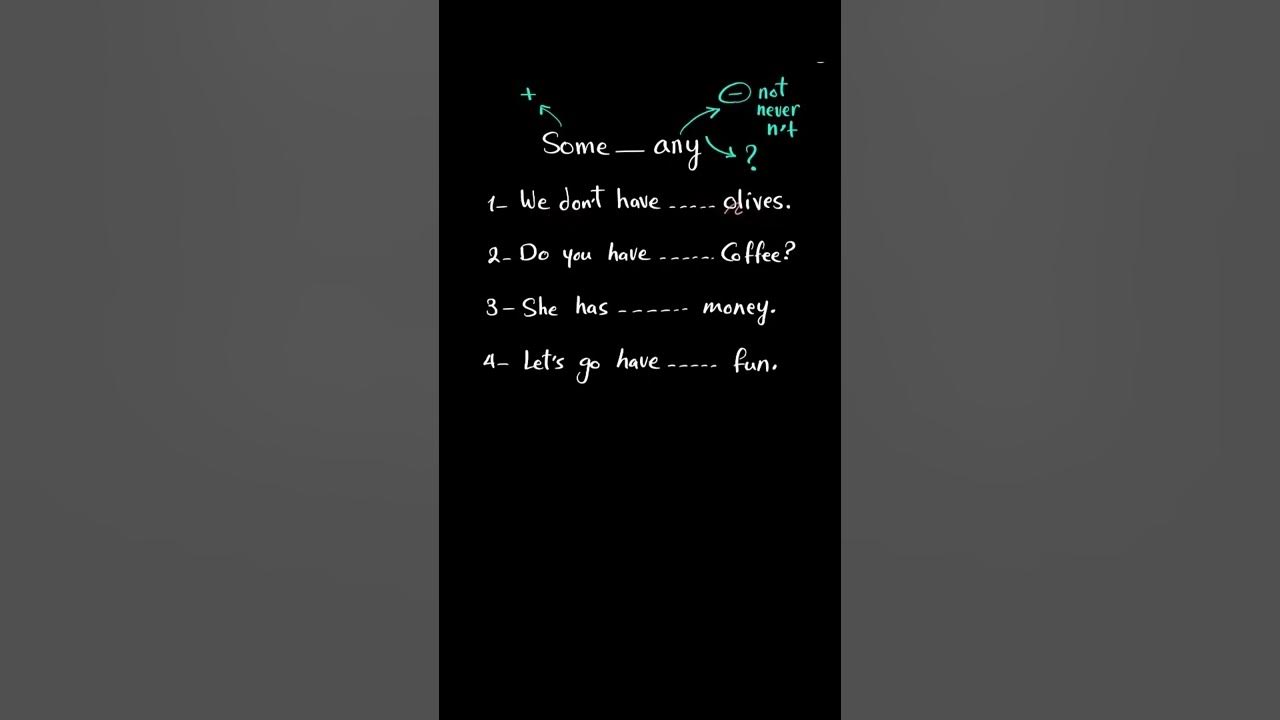 + - not
never
n't
Some __ any ?
1- We don't have ..... olives.
2- Do you have ...... Coffee?
3- She has ...... money.
4- Let's go have ..... fun.